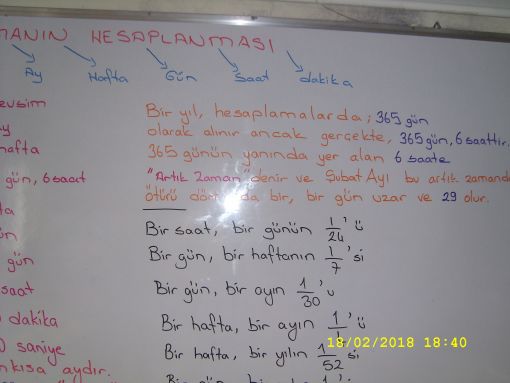 MANIN HESAPLANMASI
Ay Hafta Gün Saat dakika
evsim
ay
hafta
gün, 6 saat
fta
ün
gün
saat
dakika
saniye
nkısa aydır.
Bir yıl, hesaplamalarda; 365 gün
olarak alınır ancak gerçekte, 365 gün, 6 saattir.
365 günün yanında yer alan 6 saate
"Artık Zaman" denir ve Şubat Ayı bu artık zamanda
ötürü bir, bir gün uzar ve 29 olur.
Bir saat, bir günün 1/24'ü
Bir gün, bir haftanın 1/7'si
Bir gün, bir ayın 1/30'u
Bir hafta, bir ayın 1/ 'ü
Bir hafta, bir yılın 1/52 si
18/02/2018 18:40